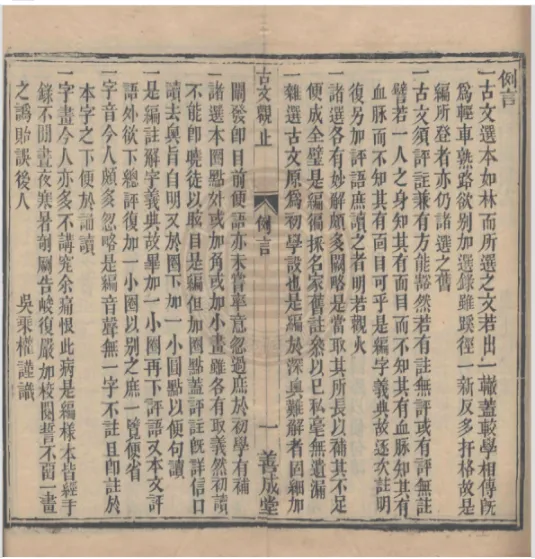 例言
一古文選本如林而所選之文若出一轍蓋較學相傳旣
爲輕車熟路欲别加選錄雖蹊徑一新反多扞格故是
編所登者亦仍諸選之舊
一古文須評註兼有方能豁然若有註無評或有評無註
譬若一人之身知其有面目而不知其有血脉知其有
血脉而不知其有面目可乎是編字義典故逐次註明
復另加評語庶讀之者明若觀火
一諸選各有妙解頗多闕略是當取其所長以補其不足
便成全璧是編徧採名家舊註叅以己私毫無遺漏
一雜選古文原爲初學設也是編於深奥難解者固細加
古文觀止
例言
一
善成堂
闡發卽目前便語亦未嘗率意忽過庶於初學有補
一諸選本圈點外或加角或加小畫雖各有取義然初讀
不能卽曉徒以眩目是編但加圈點蓋評註旣詳信口
讀去奥旨自明又於圈下加一小圓點以便句讀
一是編註解字義典故畢加一小圈再下評語又本文評
語外欲下總評復加一小圈以别之庶一覽便省
一字音今人頗多忽略是編音聲無一字不註且卽註於
本字之下便於誦讀
一字畫今人亦多不講究余痛恨此病是編様本皆經手
錄不間晝夜寒暑剞劂告峻復嚴加校閱誓不畱一畫
之譌貽誤後人
吳乘權謹識